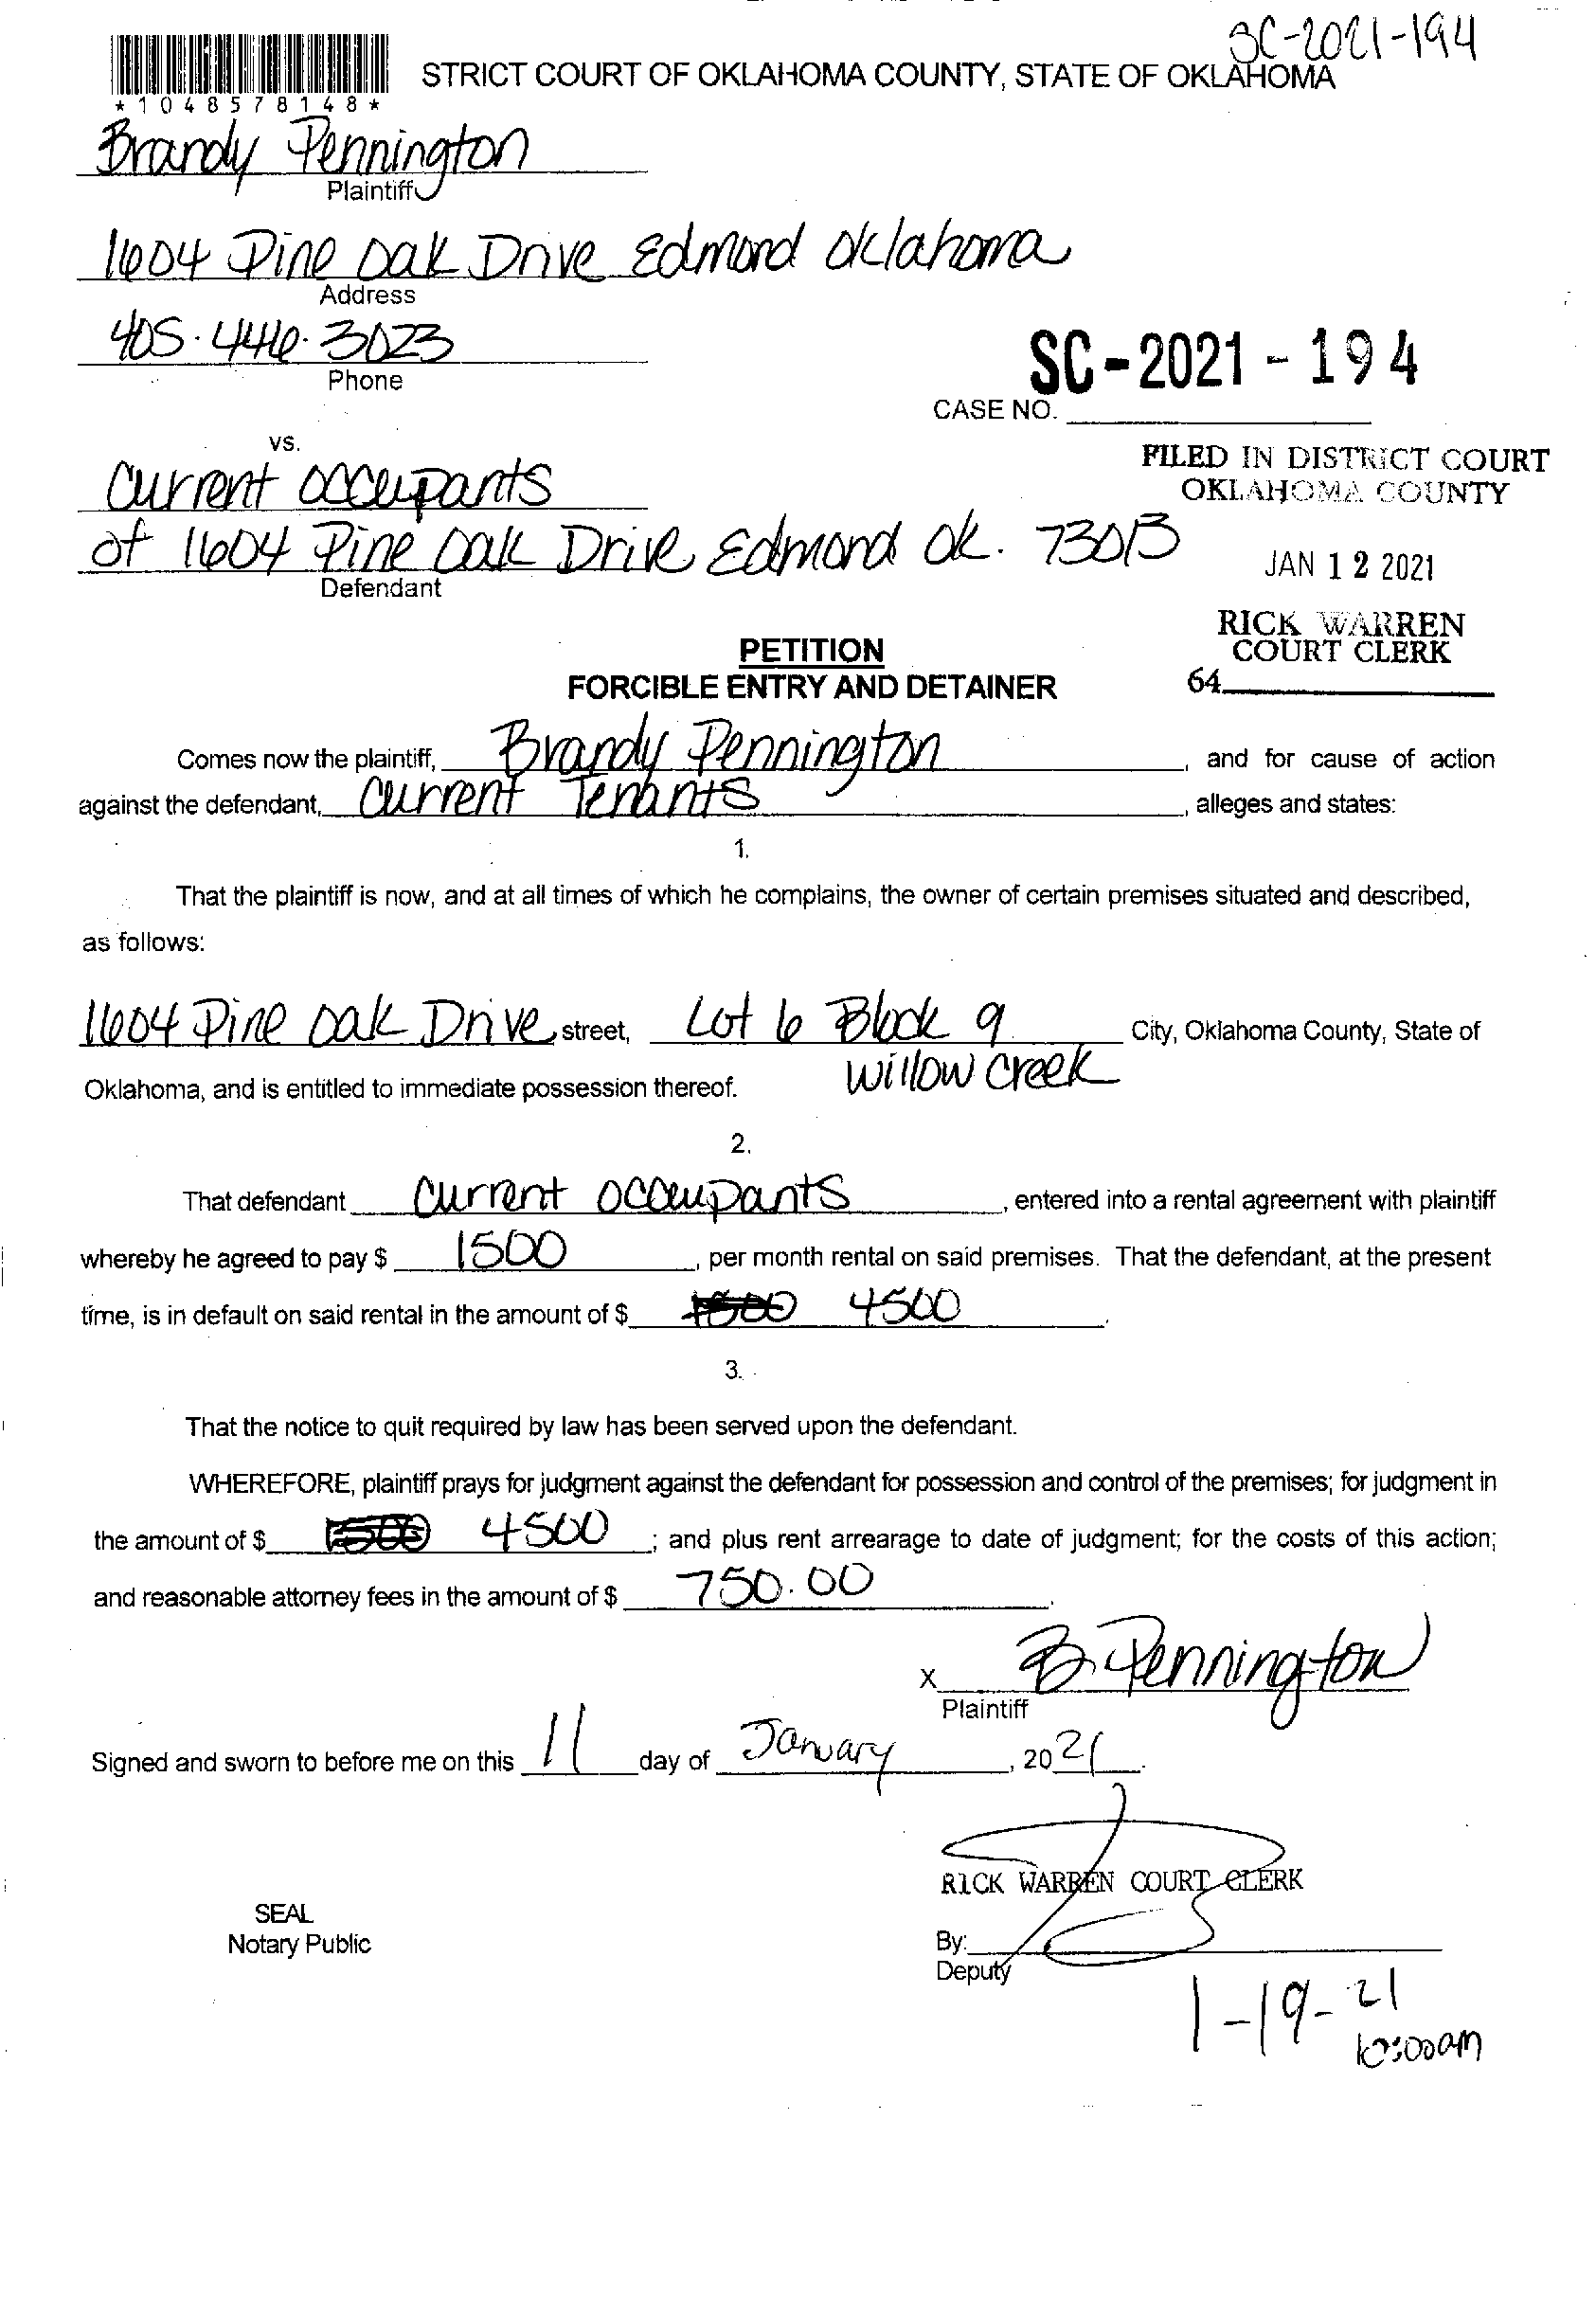 SC-2021-194
STRICT COURT OF OKLAHOMA COUNTY, STATE OF OKLAHOMA
*1048578148*
Brandy Pennington
Plaintiff
1604 Pine Oak Drive Edmond Oklahoma
Address
405.446.3023
Phone
SC-2021-194
CASE NO.
vs.
FILED IN DISTRICT COURT
OKLAHOMA COUNTY
Current occupants
of 1604 Pine Oak Drive Edmond Ok. 73013
Defendant
JAN 12 2021
RICK WARREN
COURT CLERK
64
PETITION
FORCIBLE ENTRY AND DETAINER
Comes now the plaintiff, Brandy Pennington, and for cause of action
against the defendant, Current Tenants, alleges and states:
1.
That the plaintiff is now, and at all times of which he complains, the owner of certain premises situated and described,
as follows:
1604 Pine Oak Drive street, Lot 6 Block 9 City, Oklahoma County, State of
Willow Creek
Oklahoma, and is entitled to immediate possession thereof.
2.
That defendant Current occupants, entered into a rental agreement with plaintiff
whereby he agreed to pay $ 1500, per month rental on said premises. That the defendant, at the present
time, is in default on said rental in the amount of $ 4500.
3.
That the notice to quit required by law has been served upon the defendant.
WHEREFORE, plaintiff prays for judgment against the defendant for possession and control of the premises; for judgment in
the amount of $ 4500; and plus rent arrearage to date of judgment; for the costs of this action;
and reasonable attorney fees in the amount of $ 750.00.
X B Pennington
Plaintiff
Signed and sworn to before me on this 11 day of January, 2021.
RICK WARREN COURT CLERK
SEAL
Notary Public
By:
Deputy
1-19-21
10:00am